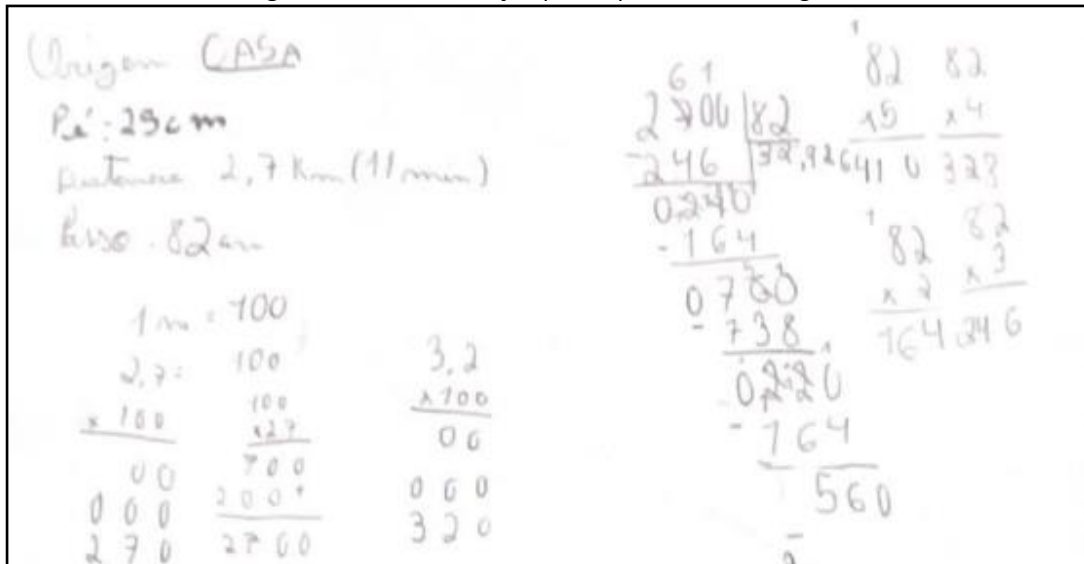 Origem CASA
Pé: 29cm
Distancia 2,7 Km (11 min)
Passo. 82 cm
1 m = 100
2,7=
x 100
00
000
270
100
100
x27
700
200+
2700
3,2
x100
00
000
320
6 1
2700 |82
-246 32,926
0240
-164
0760
-738
0220
-164
560
-
1
82
x5
410
82
x4
323
1
82
x2
164
82
x3
246